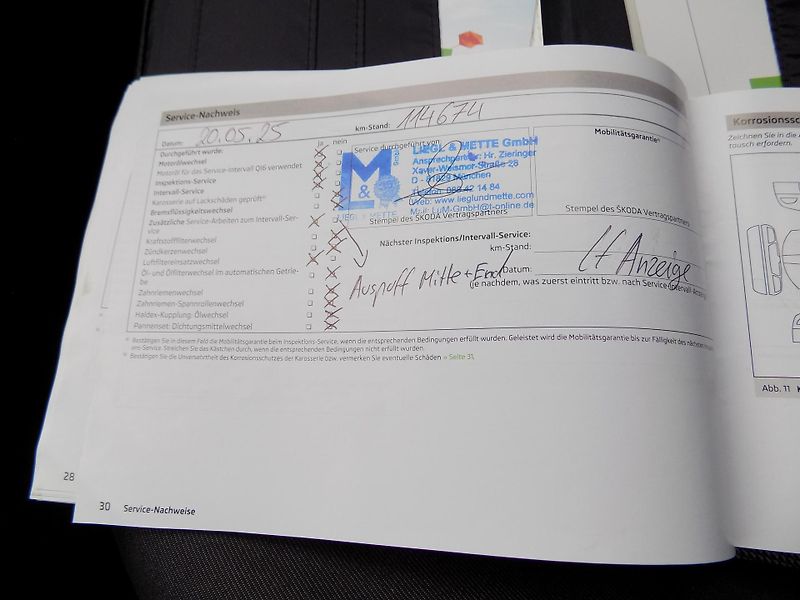 Service-Nachweis
Datum: 20.05.25
km-Stand: 114674
ja nein
Durchgeführt wurde:
Motorölwechsel
Motoröl für das Service-Intervall QI6 verwendet
Inspektions-Service
Intervall-Service
Karosserie auf Lackschäden geprüft
Bremsflüssigkeitswechsel
Zusätzliche Service-Arbeiten zum Intervall-Ser-
vice
Kraftstofffilterwechsel
Zündkerzenwechsel
Luftfiltereinsatzwechsel
Öl- und Ölfilterwechsel im automatischen Getrie-
be
Zahnriemenwechsel
Zahnriemen-Spannrollenwechsel
Haldex-Kupplung: Ölwechsel
Pannenset: Dichtungsmittelwechsel
Service durchgeführt von:
M & L
GmbH
LIEGL & METTE
LIEGL & METTE GmbH
Ansprechpartner: Hr. Zieringer
Xaver-Weismor-Straße 28
D - 81829 München
Telefon: 089 42 14 84
Web: www.lieglundmette.com
Mail: LuM-GmbH@t-online.de
Stempel des ŠKODA Vertragspartners
Mobilitätsgarantie
Stempel des ŠKODA Vertragspartners
Nächster Inspektions/Intervall-Service:
km-Stand:
lt Anzeige
Datum:
(je nachdem, was zuerst eintritt bzw. nach Service-Intervall-Anzeige)
Auspuff Mitte + End
Bestätigen Sie in diesem Feld die Mobilitätsgarantie beim Inspektions-Service, wenn die entsprechenden Bedingungen erfüllt wurden. Geleistet wird die Mobilitätsgarantie bis zur Fälligkeit des nächsten
ons-Service. Streichen Sie das Kästchen durch, wenn die entsprechenden Bedingungen nicht erfüllt wurden.
Bestätigen Sie die Unversehrtheit des Korrosionsschutzes der Karosserie bzw. vermerken Sie eventuelle Schäden » Seite 31.
28
30 Service-Nachweise
Korrosionssc
Zeichnen Sie in die
tausch erfordern.
Abb. 11 K